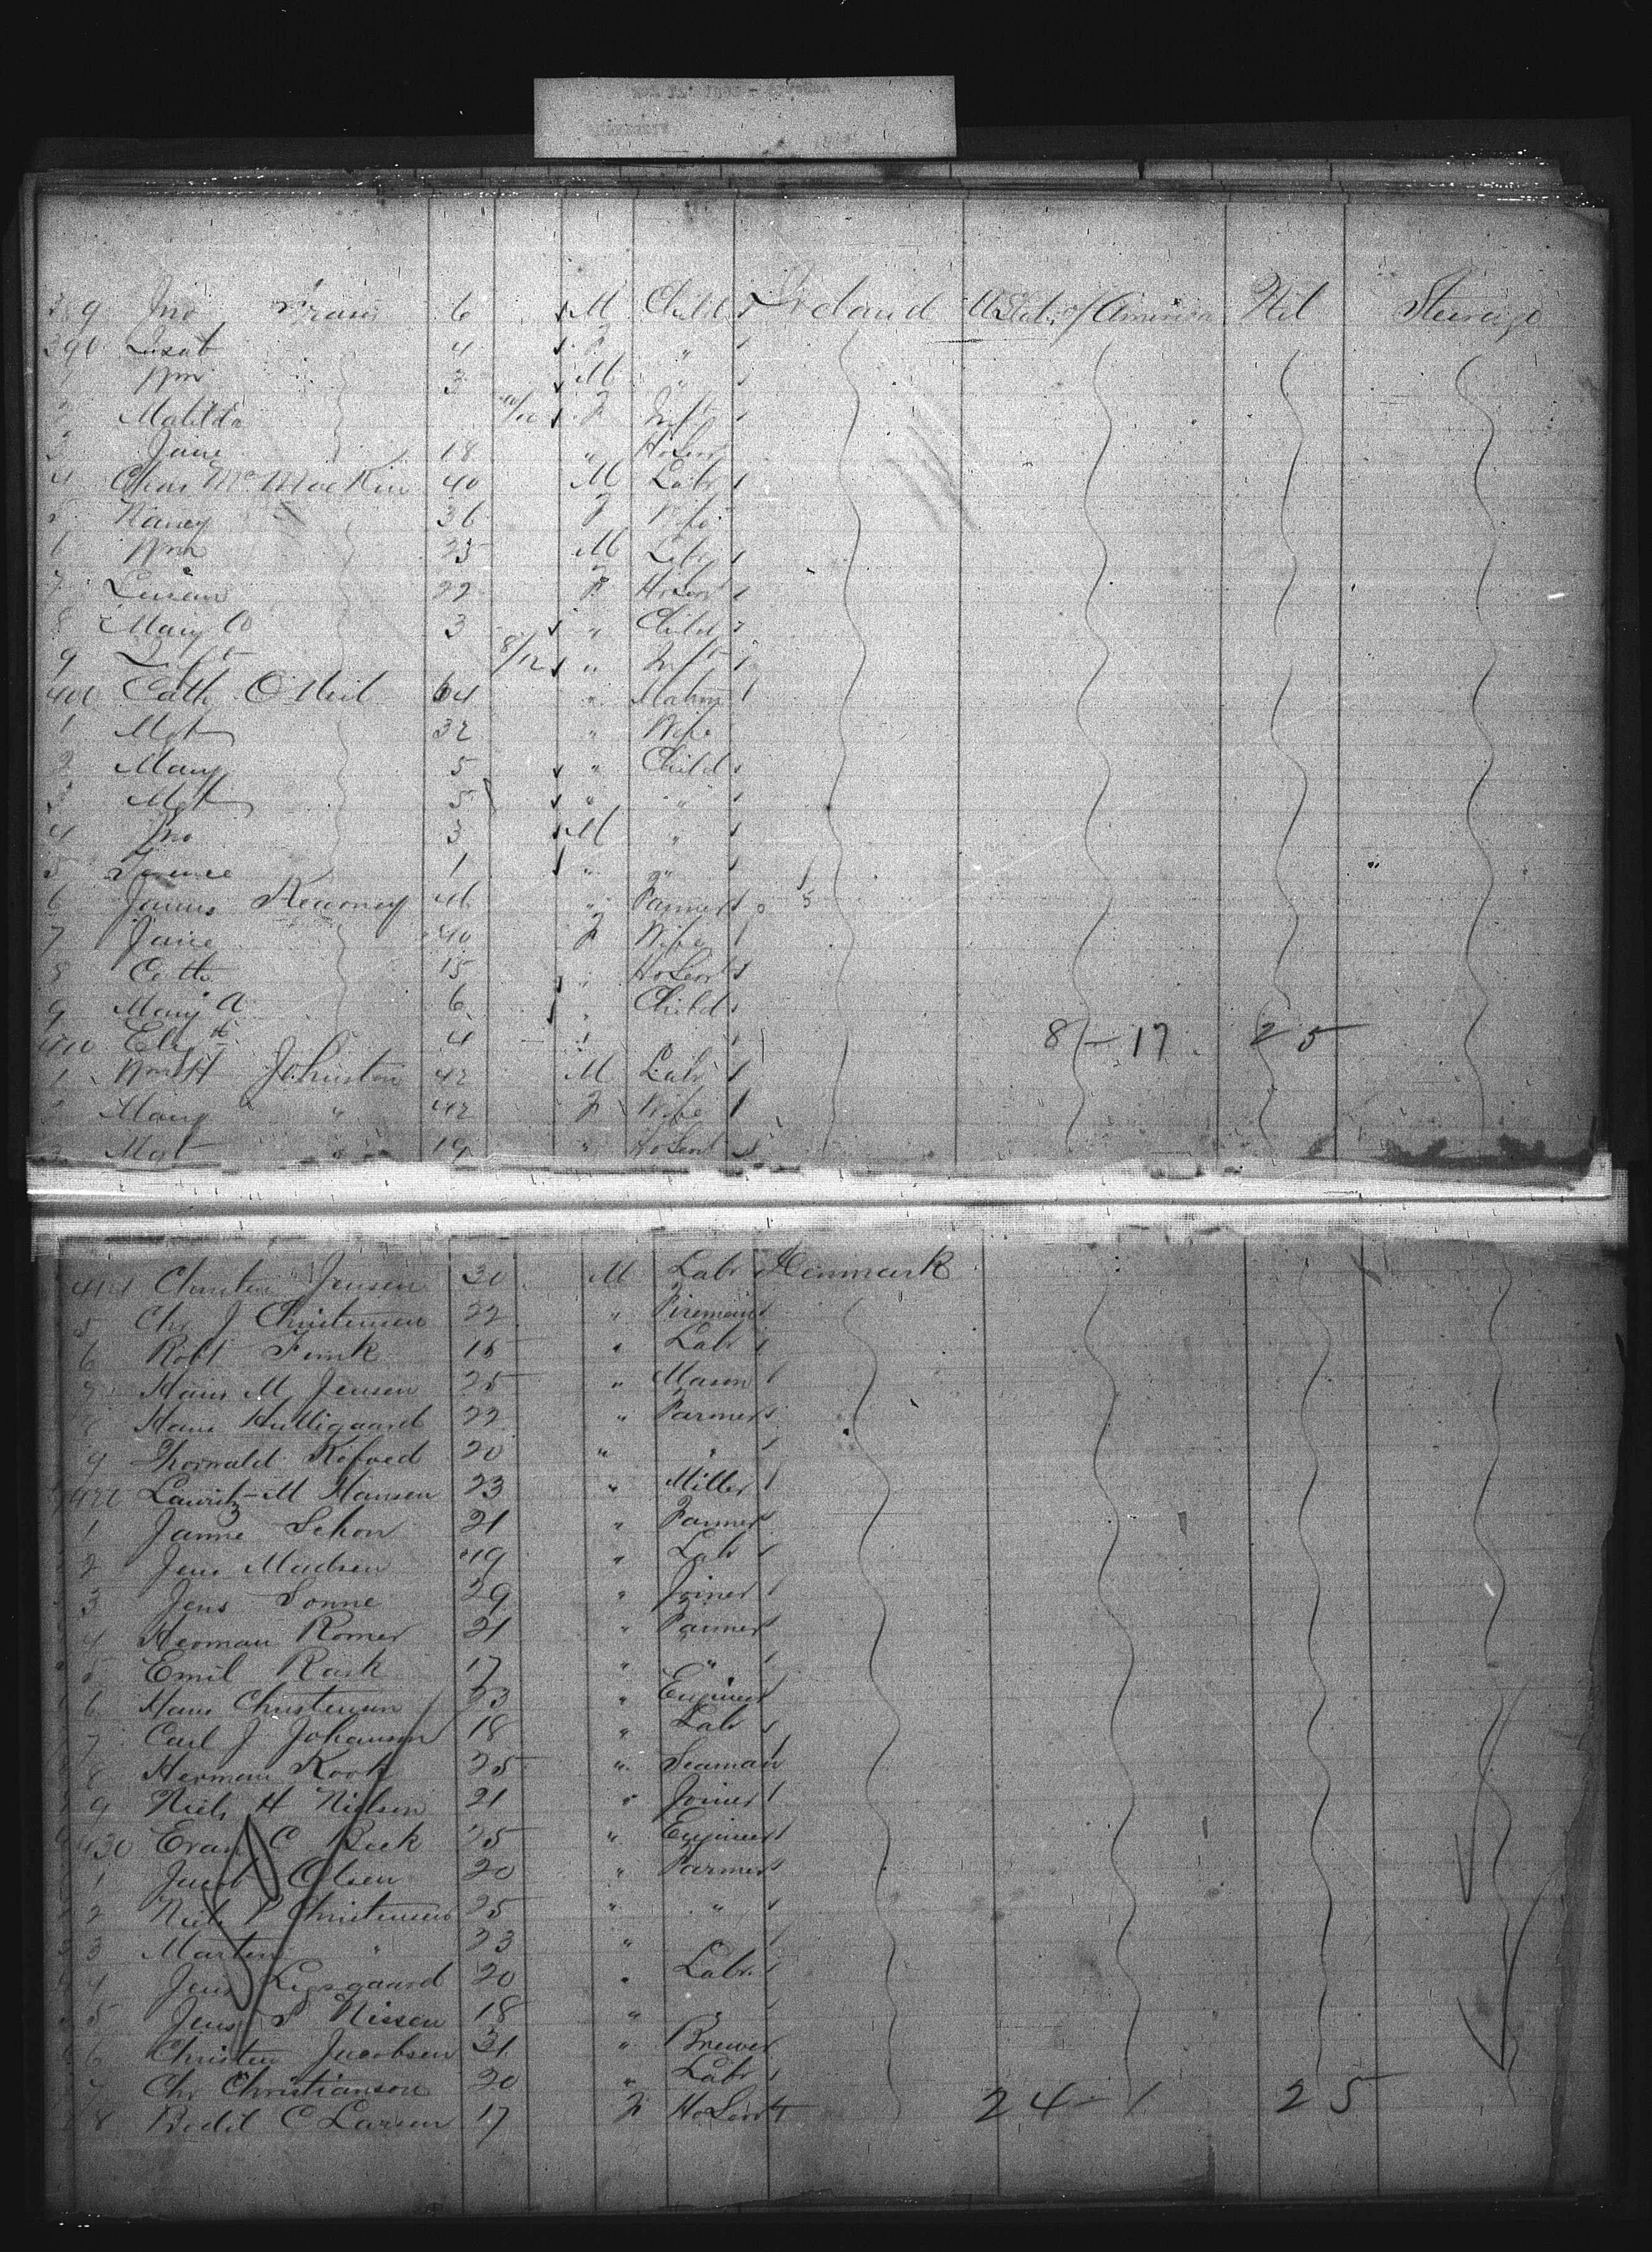 9 Jno 6 M Child Ireland U States of America Nil Steerage
390 4 F "
Wm 3 M "
2 Matilda 10/12 F Inft
3 Jane 18 " HoServ
4 Chas Mc 40 M Labr
5 Nancy 36 F Wife
6 Wm 25 M Labr
7 22 F HoServ
8 Mary 3 " Child
9 Inft 8/12 " Inft
400 Cath O Neil 64 " Matron
1 Mgt 32 " Wife
2 Mary 5 " Child
3 Mgt 5 " "
4 Jno 3 M "
5 1 " "
6 James Kearney " Farmer
7 Jane 40 F Wife
8 Cath 15 " HoServ
9 Mary A 6 " Child
410 Elizth 4 " 8 - 17 25
1 Wm H Johnston 42 M Labr
2 Mary " 42 F Wife
3 Mgt " 19 " HoServ
414 Christen Jensen 30 M Labr Denmark
5 Chr J Christensen 22 " Fireman
6 Robt Funk " Labr
7 Hans M Jensen 25 " Mason
8 Hans 22 " Farmer
9 Thorvald Kofoed 20 " "
420 Lauritz M Hansen 23 " Miller
1 Janne Schon 21 " Farmer
2 Jens Madsen 19 " Labr
3 Jens Sonne 29 " Joiner
4 Herman Romer 21 " Farmer
5 Emil Rask 17 " "
6 Hans Christensen 23 " Engineer
7 Carl J Johansen 18 " Labr
8 Herman 25 " Seaman
9 Niels H Nielsen 21 " Joiner
430 C 25 " Engineer
1 Jacob Olsen 20 " Farmer
2 Niels P Christensen 25 " "
3 Marten " 23 "
4 Jens 20 " Labr
5 Jens Nissen 18 " "
6 Christen Jacobsen 31 " Brewer
7 Chr Christianson 20 " Labr
8 Bodil C Larsen 17 F HoServ 24 - 1 25